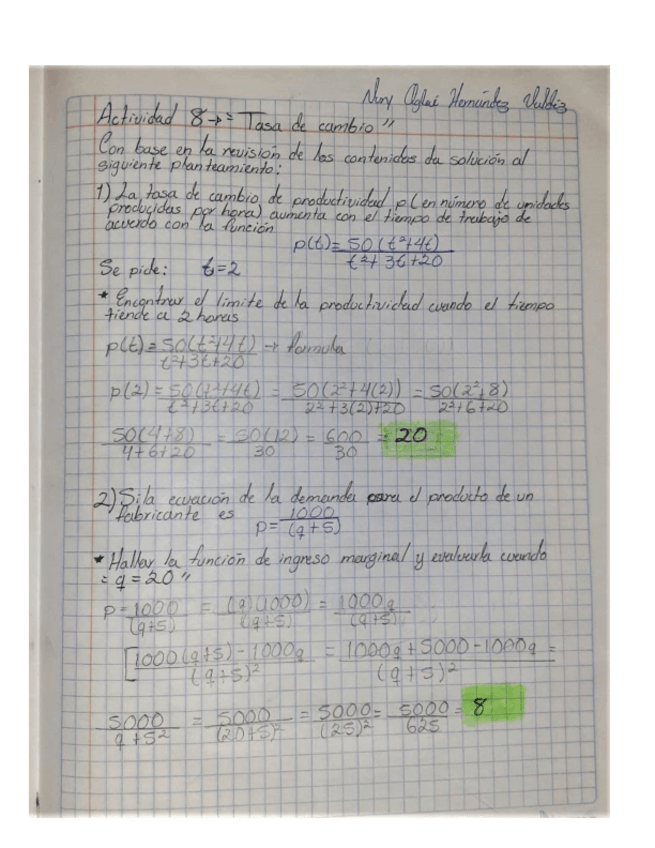 Nury Aglai Hernández Valdez
Actividad 8→ "Tasa de cambio"
Con base en la revisión de los contenidos da solución al
siguiente planteamiento:
1) La tasa de cambio de productividad p (en número de unidades
producidas por hora) aumenta con el tiempo de trabajo de
acuerdo con la función
p(t)= 50(t²+4t) / t²+3t+20
Se pide: t=2
* Encontrar el límite de la productividad cuando el tiempo
tiende a 2 horas
p(t)= 50(t²+4t) / t²+3t+20 → formula
p(2)= 50(t²+4t) / t²+3t+20 = 50(2²+4(2)) / 2²+3(2)+20 = 50(2²+8) / 2²+6+20
50(4+8) / 4+6+20 = 50(12) / 30 = 600 / 30 = 20
2) Si la ecuación de la demanda para el producto de un
fabricante es p= 1000 / (q+5)
* Hallar la función de ingreso marginal y evaluarla cuando
"q=20"
P= 1000 / (q+5) = (q)(1000) / (q+5) = 1000q / (q+5)
[1000(q+5)-1000q / (q+5)² = 1000q+5000-1000q / (q+5)² =
5000 / q+5² = 5000 / (20+5)² = 5000 / (25)² = 5000 / 625 = 8